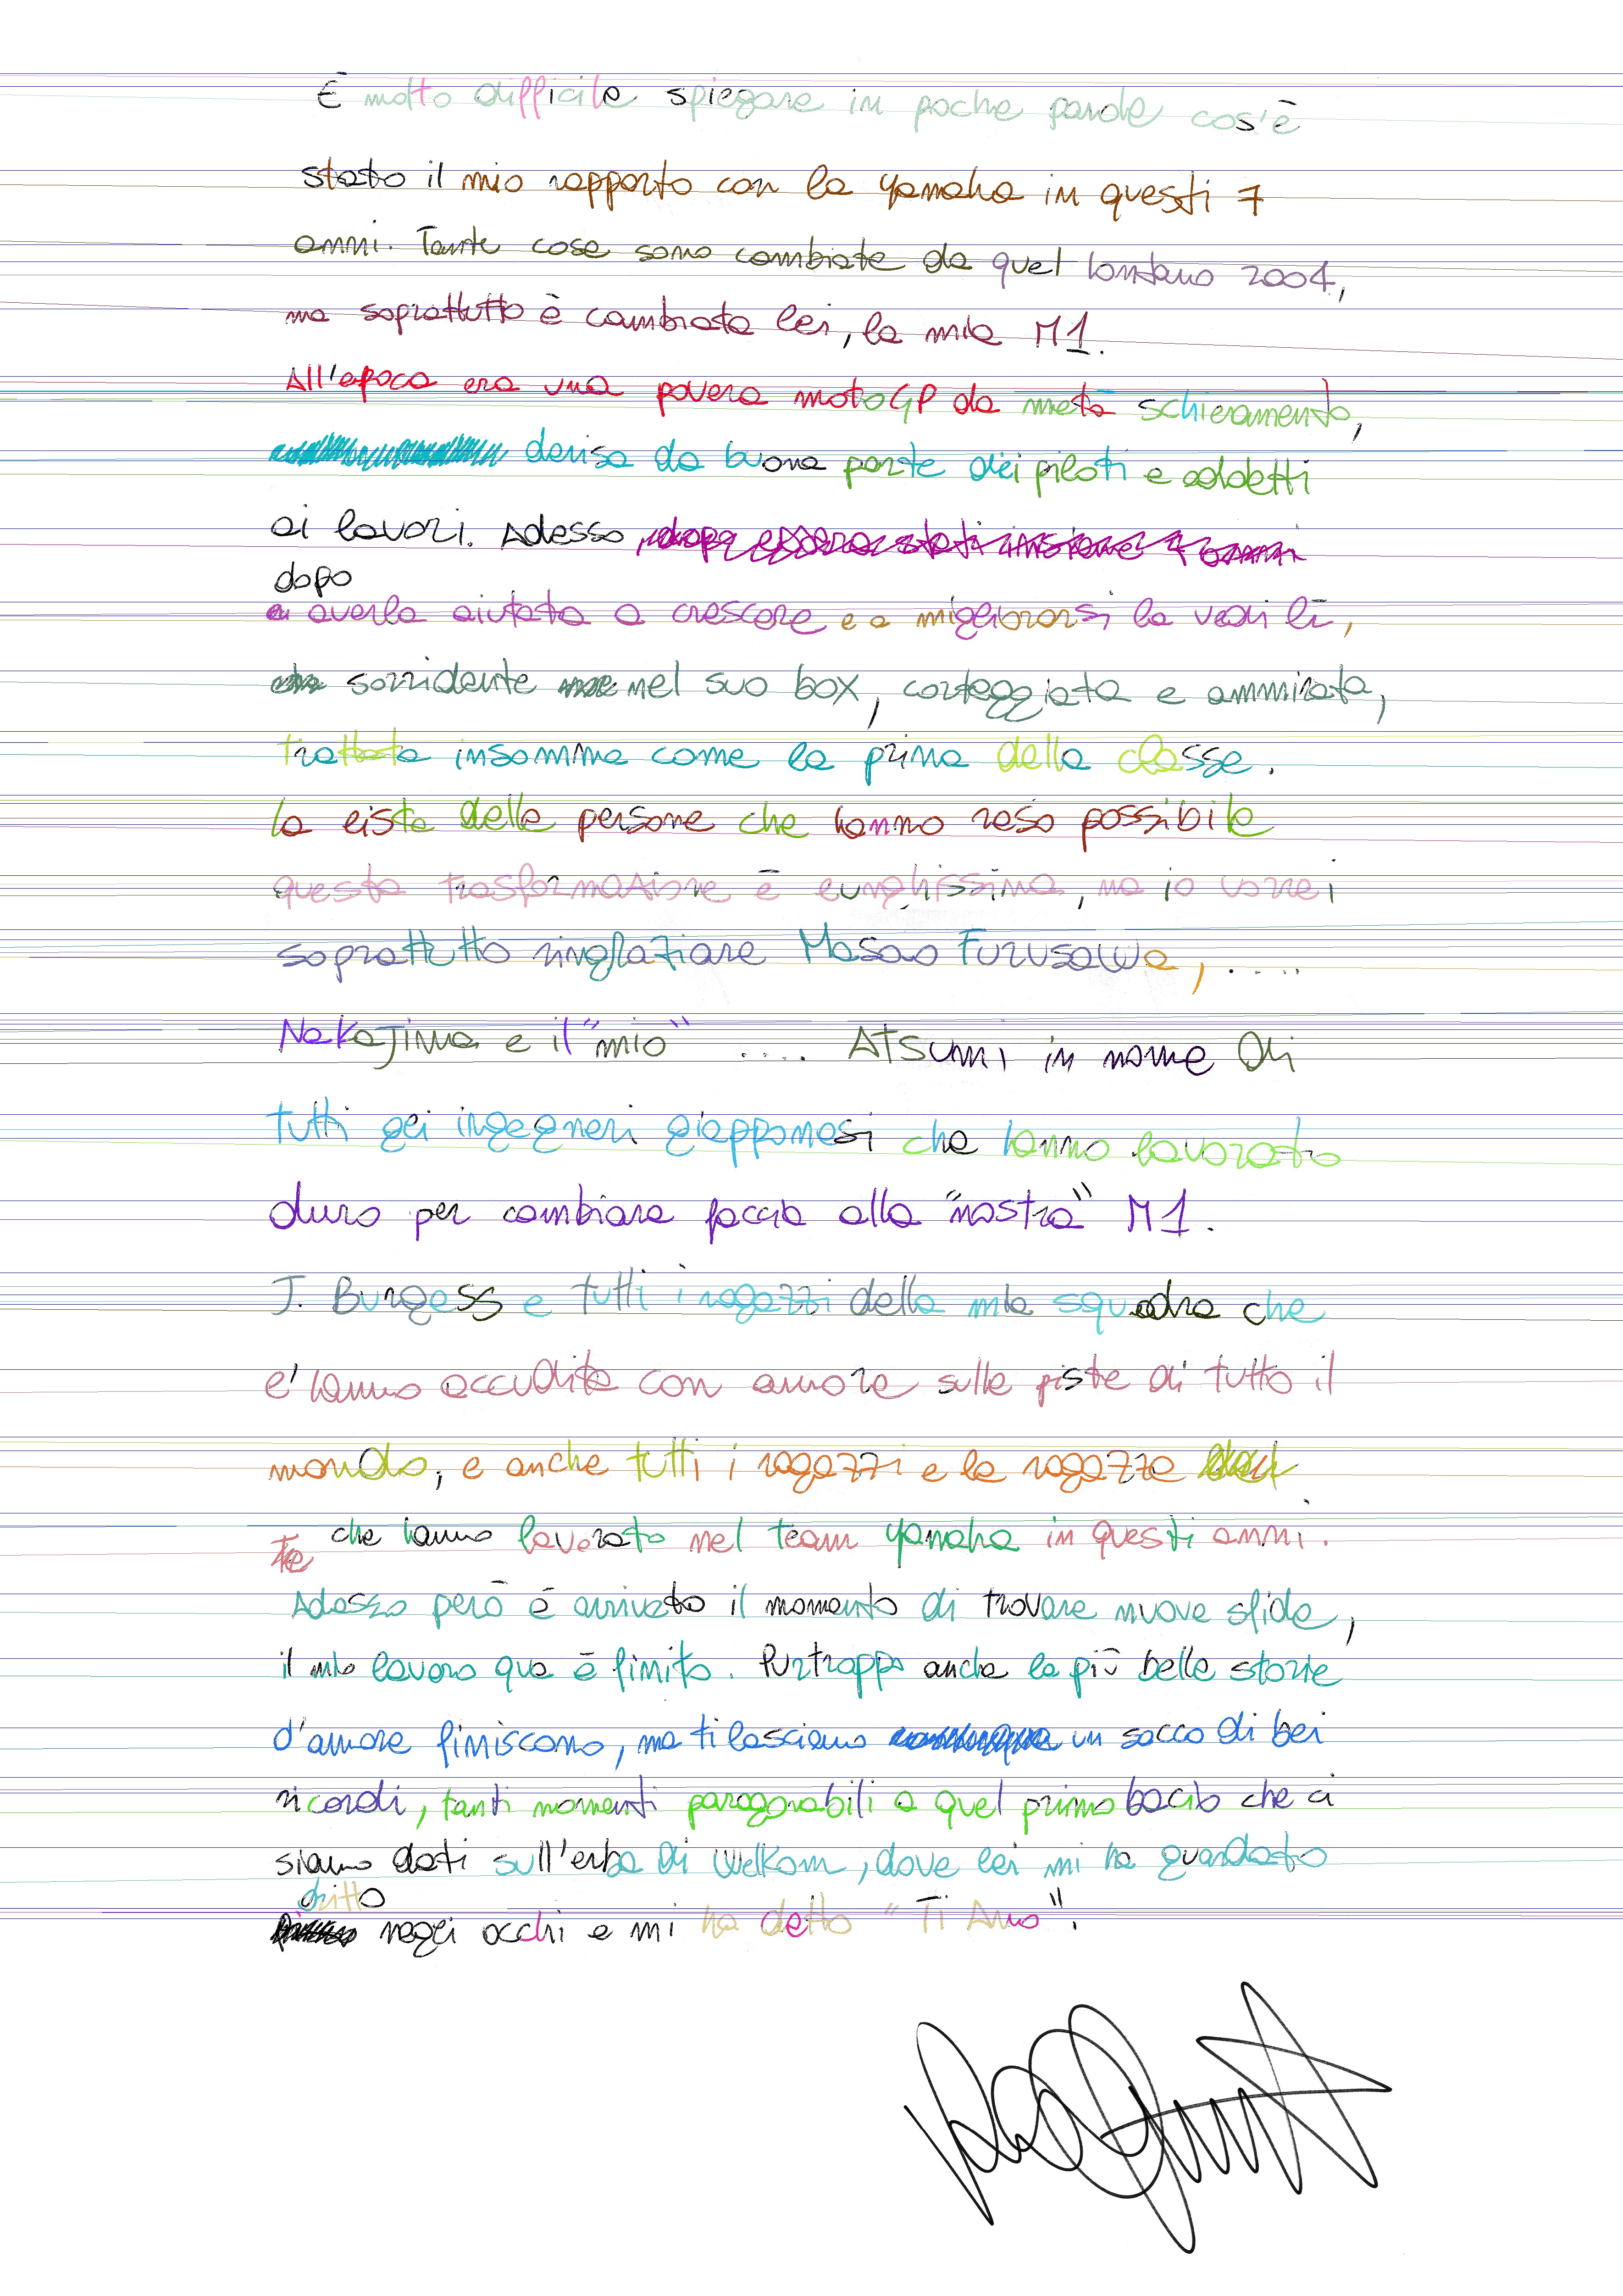 È molto difficile spiegare in poche parole cos'è
stato il mio rapporto con la yamaha in questi 7
anni. Tante cose sono cambiate da quel lontano 2004,
ma soprattutto è cambiata lei, la mia M1.
All'epoca era una povera moto GP da metà schieramento,
derisa da buona parte dei piloti e addetti
ai lavori. Adesso, dopo essere stati insieme 7 anni
dopo
averla aiutata a crescere e a migliorarsi la vedi lì,
sorridente nel suo box, corteggiata e ammirata,
trattata insomma come la prima della classe.
la lista delle persone che hanno reso possibile
questa trasformazione è lunghissima, ma io vorrei
soprattutto ringraziare Masao Furusawa, .....
Nakajima e il "mio" .... Atsumi in nome di
tutti gli ingegneri giapponesi che hanno lavorato
duro per cambiare faccia alla "nostra" M1.
J. Burgess e tutti i ragazzi della mia squadra che
l'hanno accudita con amore sulle piste di tutto il
mondo, e anche tutti i ragazzi e le ragazze
che hanno lavorato nel team yamaha in questi anni.
Adesso però è arrivato il momento di trovare nuove sfide,
il mio lavoro qua è finito. Purtroppo anche le più belle storie
d'amore finiscono, ma ti lasciano un sacco di bei
ricordi, tanti momenti paragonabili a quel primo bacio che ci
siamo dati sull'erba di Welkom, dove lei mi ha guardato
dritto
negli occhi e mi ha detto "Ti Amo".